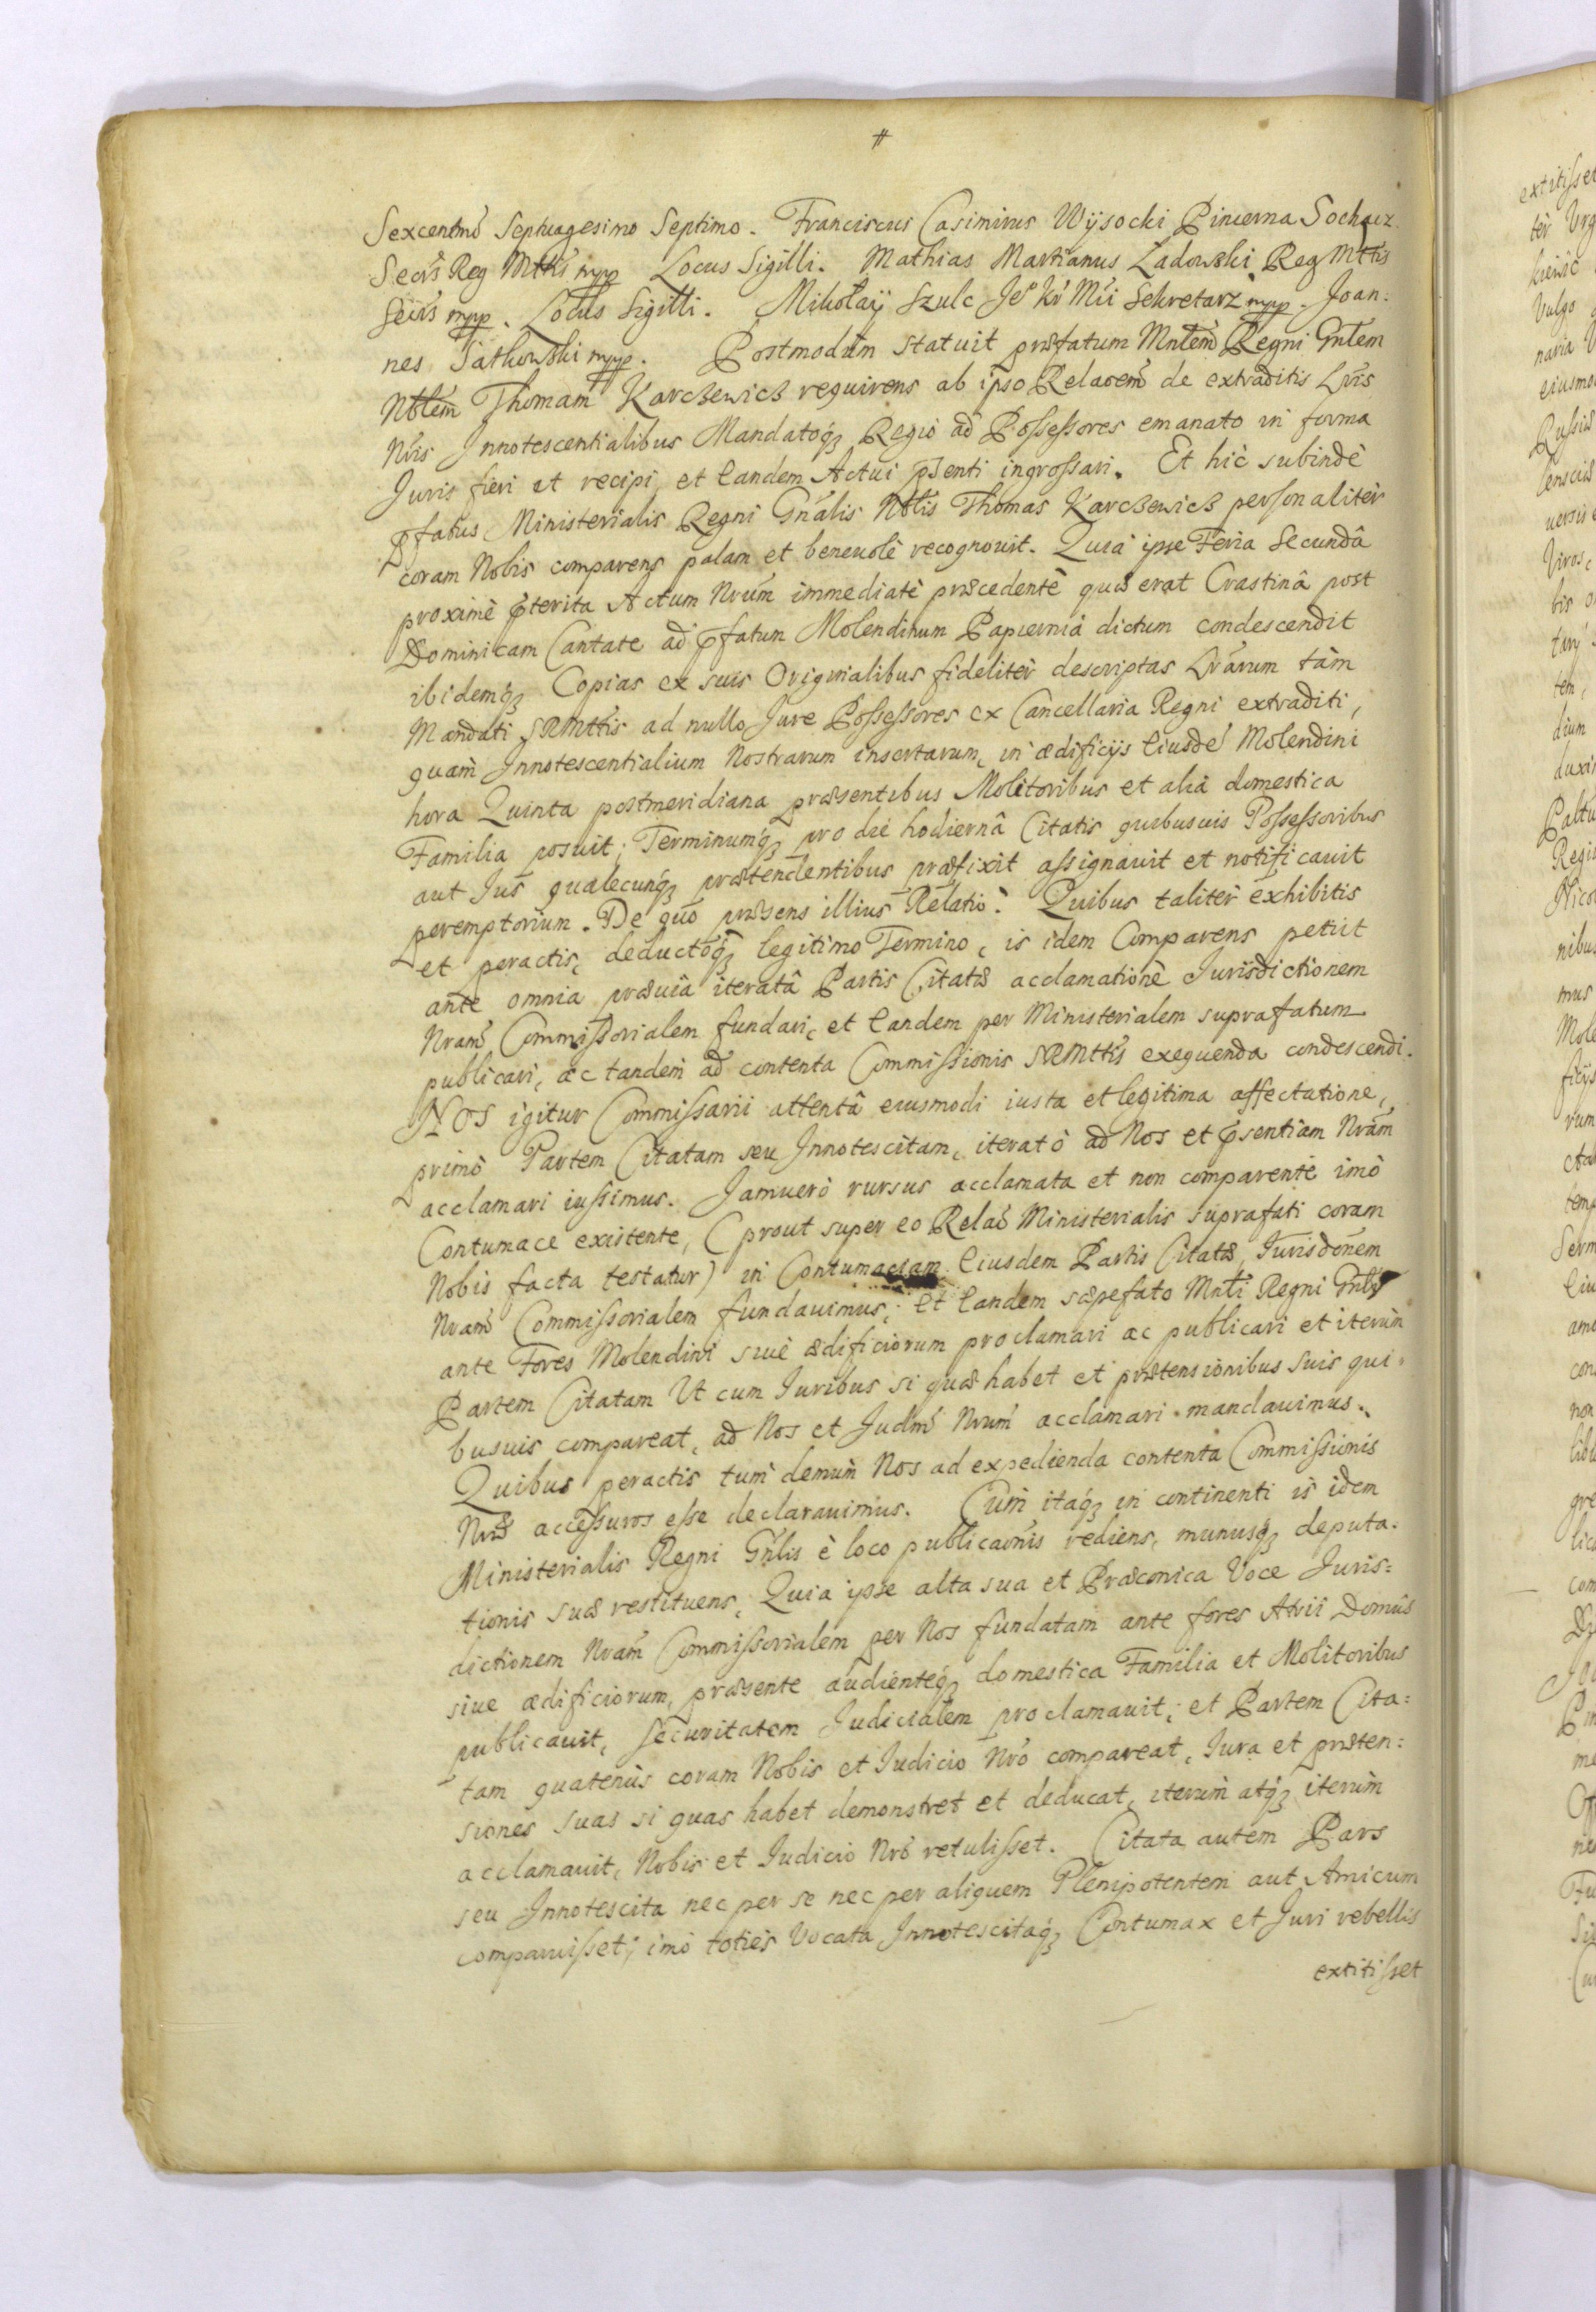 #
Sexcentmo Septuagesimo Septimo. Franciscus Casimirus Wÿsocki Pincerna Sochacz.
Secrs Reg Mttis mpp Locus Sigilli. Mathias Martianus Ladowski Reg Mttis
Secrs mpp. Locus Sigilli. Mikołaÿ Szulc Jeo Kr Mci Sekretarz mpp. Joan:
nes Jatkowski mpp. Postmodum statuit præfatum Mnlem Regni Gnlem
Nblem Thomam Karczewicz requirens ab ipso Relaoem de extraditis Lris
Nris Innotescentialibus Mandatoq; Regio ad Possessores emanato in forma
Juris fieri et recipi, et eandem Actui pñti ingrossari. Et hic subindè
pfatus Ministerialis Regni Gnalis Nblis Thomas Karczewicz personalitèr
coram Nobis comparens palam et beneuolè recognouit. Quia ipse Feria Secundâ
proximè pterita Actum Nrum immediatè præcedente quæ erat Crastinâ post
Dominicam Cantate ad pfatum Molendinum Papiernia dictum condescendit
ibidemq; Copias ex suis Originalibus fidelitèr descriptas Lrarum tàm
Mandati SRMttis ad nullo Jure Possessores ex Cancellaria Regni extraditi,
quam Innotescentialium Nostrarum insertarum, in ædificijs eiusdē Molendini
hora Quinta postmeridiana præsentibus Molitoribus et alia domestica
Familia posuit; Terminumq; pro die hodiernâ Citatis quibusuis Possessoribus
aut Jus qualecunq; prætendentibus præfixit assignauit et notificauit
peremptorium. De quo præsens illius Relatio. Quibus talitèr exhibitis
et peractis, deductoq; legitimo Termino, is idem Comparens petiit
ante omnia præuia iteratâ Partis Citatæ acclamatione Jurisdictionem
Nram Commissorialem fundari, et eandem per Ministerialem suprafatum
publicari, ac tandem ad contenta Commissionis SRMttis exequenda condescendi.
NOS igitur Commissarii attentâ eiusmodi iusta et legitima affectatione,
primò Partem Citatam seu Innotescitam, iteratò ad Nos et psentiam Nram
acclamari iussimus. Jamuerò rursus acclamata et non comparente imò
Contumace existente, (prout super eo Relao Ministerialis suprafati coram
Nobis facta testatur) in Contumaciam eiusdem Partis Citatæ, Jurisdonem
Nram Commissorialem fundauimus, et eandem sæpefato Mnli Regni Gnli
ante Fores Molendini siuè ædificiorum proclamari ac publicari et iterùm
Partem Citatam Ut cum Juribus si quæ habet et prætensionibus suis qui-
busuis compareat, ad Nos et Judm Nrum acclamari mandauimus.
Quibus peractis tum demùm Nos ad expedienda contenta Commissionis
Nræ accessuros esse declarauimus. Cum itaq; in continenti is idem
Ministerialis Regni Gnlis è loco publicaonis rediens, munusq; deputa-
tionis suæ restituens, Quia ipse alta sua et Præconica Voce Juris:
dictionem Nram Commissorialem per Nos fundatam ante fores Atrii Domûs
siue ædificiorum, præsente audienteq; domestica Familia et Molitoribus
publicauit, securitatem Judicialem proclamauit, et Partem Cita:
tam quatenùs coram Nobis et Judicio Nro compareat, Jura et præten:
siones suas si quas habet demonstret et deducat, iterùm atq; iterùm
acclamauit, Nobis et Judicio Nro retulisset. Citata autem Pars
seu Innotescita nec per se nec per aliquem Plenipotentem aut Amicum
comparuisset; imò totiès Vocata Innotescitaq; Contumax et Juri rebellis
extitisset